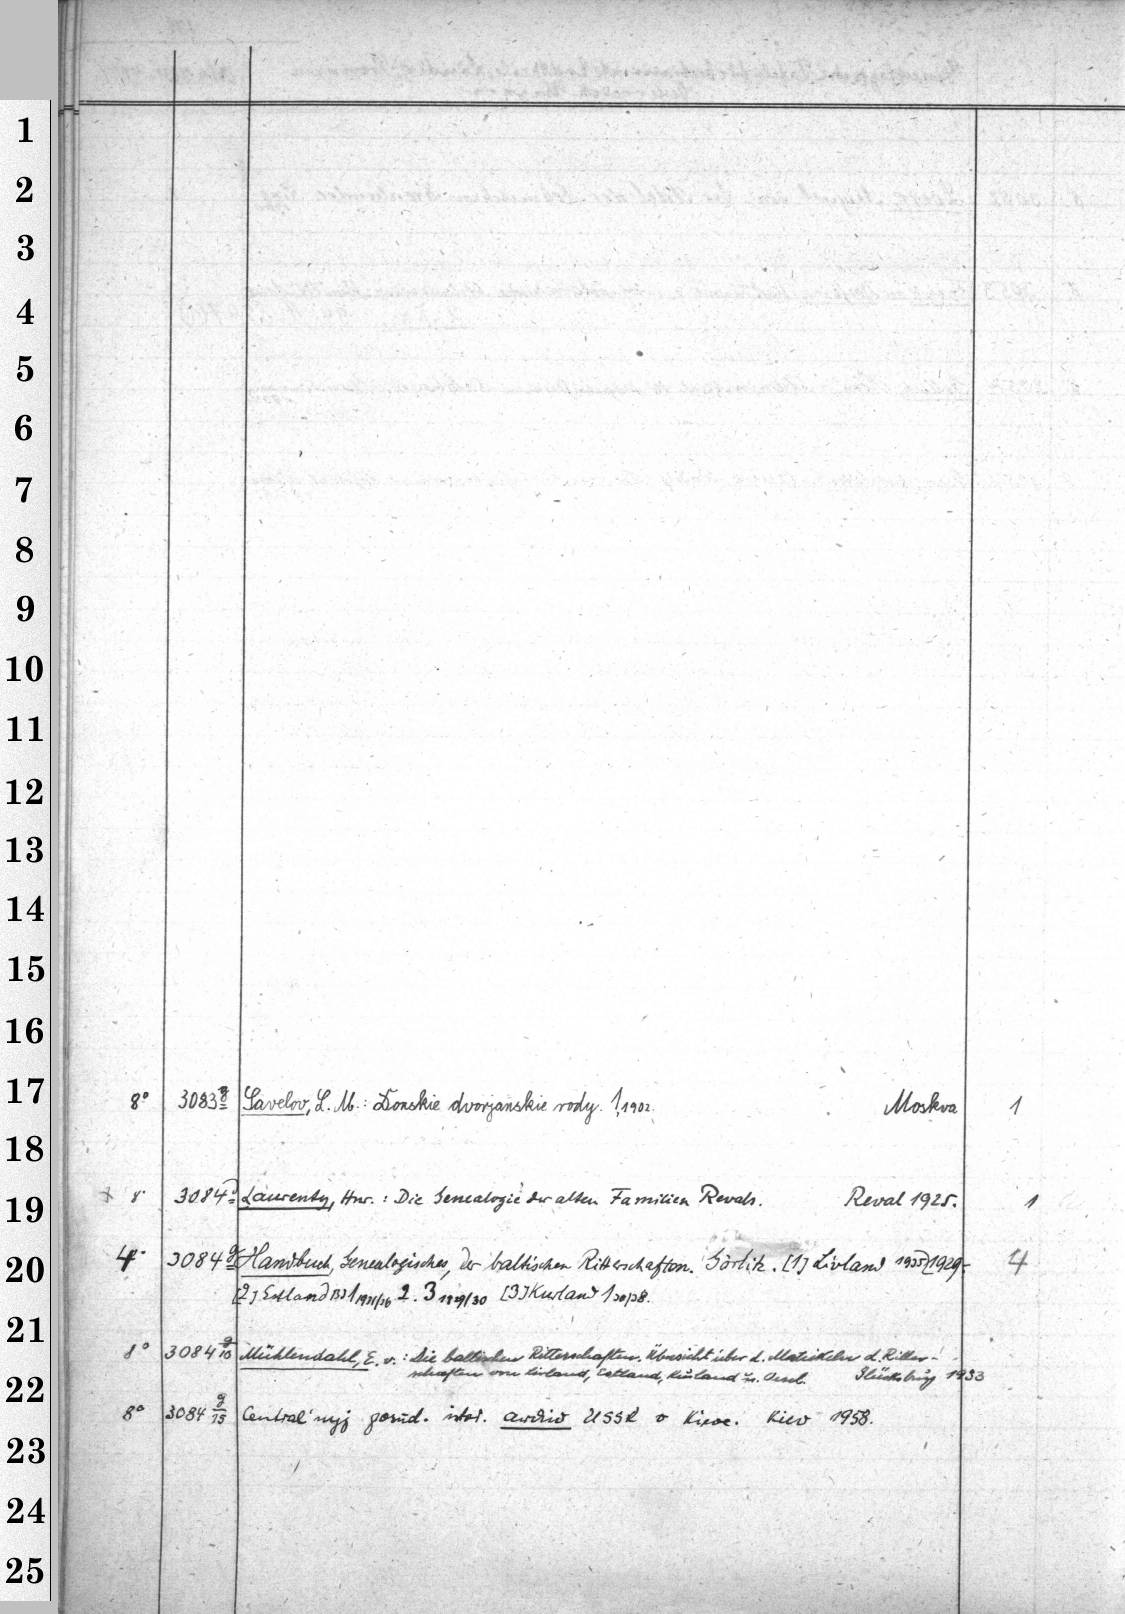 1
2
3
4
5
6
7
8
9
10
11
12
13
14
15
16
17
8° 3083 g/8 Savelov, L. M.: Donskie dvorjanskie rody. 1, 1902. Moskva 1
18
19
8° 3084 Laurenty, Hnr.: Die Genealogie der alten Familien Revals. Reval 1925. 1
20
4° 3084 g/8 Handbuch, Genealogisches, der baltischen Ritterschaften. Görlitz. [1] Livland 1935) [1929- 4
[2] Estland Bd 1 1931/36 2. 3 1929/30 [3] Kurland 1 30/38.
21
8° 3084 g/10 Mühlendahl, E. v.: Die baltischen Ritterschaften. Übersicht über d. Matrikeln d. Ritter-
22
schaften von Livland, Estland, Kurland u. Oesel. Glücksburg 1953
8° 3084 g/15 Central'nyj gosud. istor. archiv USSR v Kieve. Kiev 1958.
23
24
25